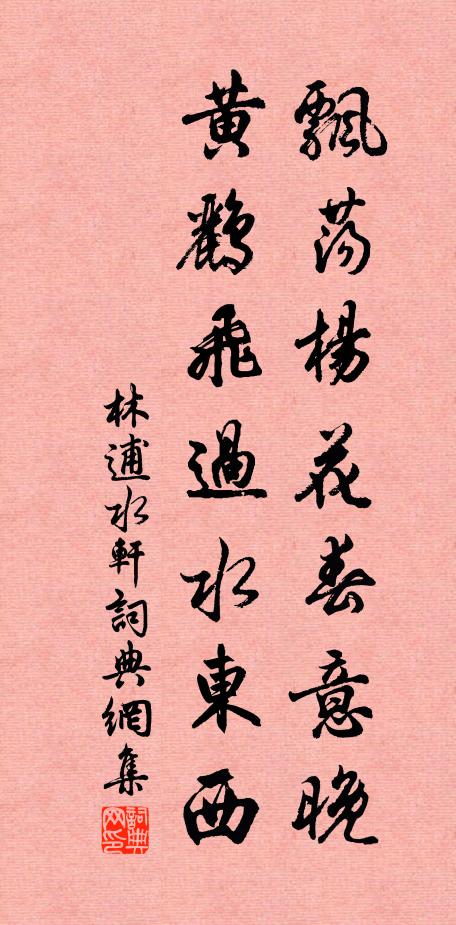 飄蕩楊花春意晚
黃鸝飛過水東西
林逋水軒詞典網集
詞典
网印